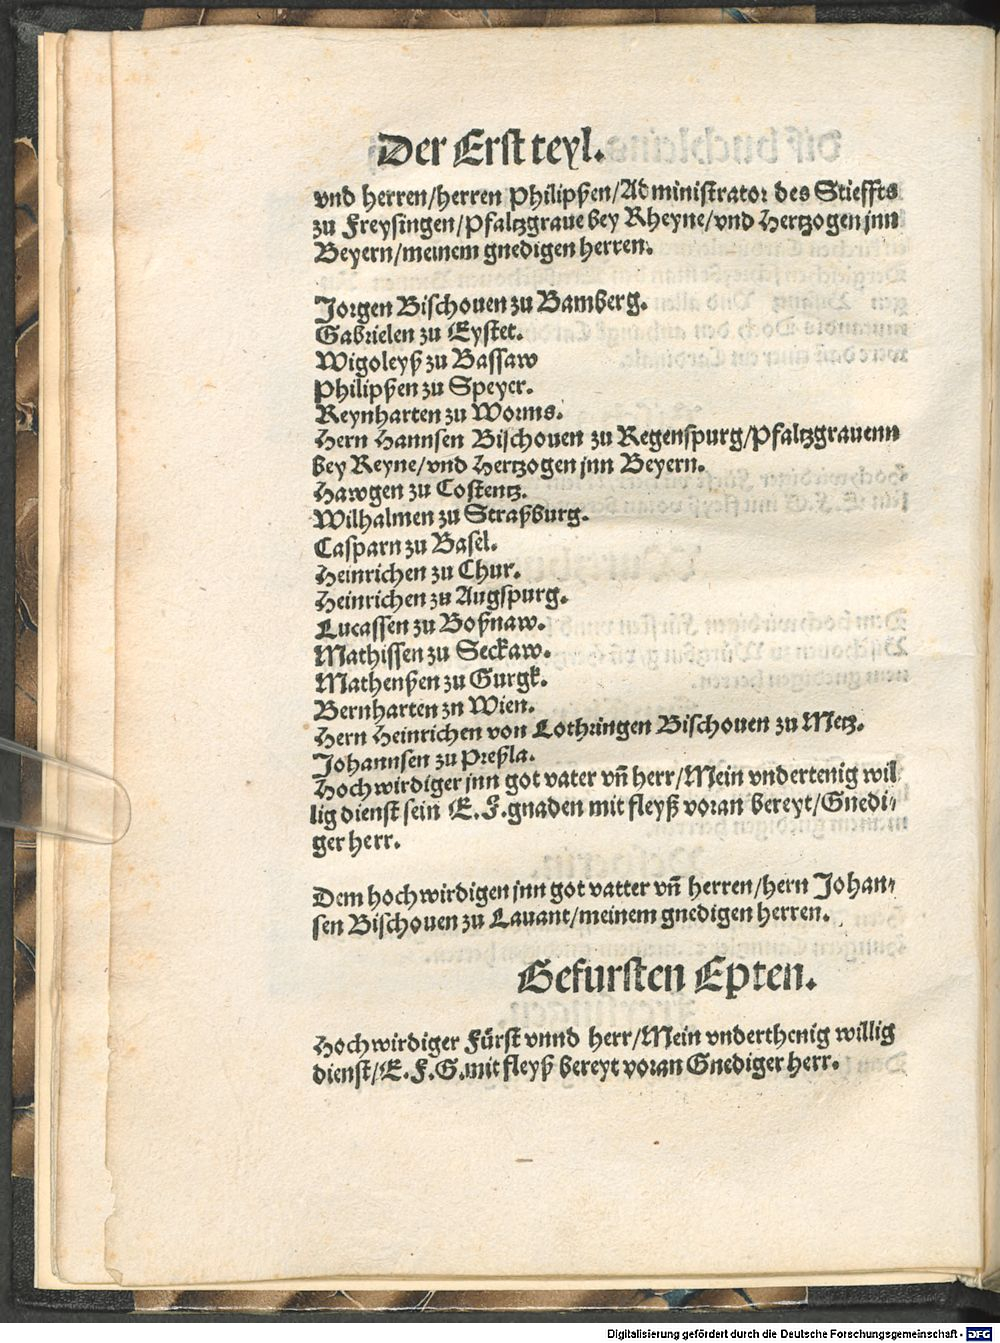 Der Erst teyl.
vnd herren/herren Philipßen/Administrator des Stieffts
zu Freysingen/Pfaltzgraue bey Rheyne/vnd Hertzogen jnn
Beyern/meinem gnedigen herren.
Jorgen Bischouen zu Bamberg.
Gabrielen zu Eystet.
Wigoleyß zu Bassaw
Philipßen zu Speyer.
Reynharten zu Worms.
Hern Hannsen Bischouen zu Regenspurg/Pfaltzgrauenn
bey Reyne/vnd Hertzogen jnn Beyern.
Hawgen zu Costentz.
Wilhalmen zu Straßburg.
Casparn zu Basel.
Heinrichen zu Chur.
Heinrichen zu Augspurg.
Lucassen zu Boßnaw.
Mathissen zu Seckaw.
Mathenßen zu Gurgk.
Bernharten zn Wien.
Hern Heinrichen von Lothringen Bischouen zu Metz.
Johannsen zu Preßla.
Hochwirdiger jnn got vater vñ herr/Mein vndertenig wil
lig dienst sein E. F. gnaden mit fleyß voran bereyt/Gnedi⸗
ger herr.
Dem hochwirdigen jnn got vatter vñ herren/hern Johan⸗
sen Bischouen zu Lauant/meinem gnedigen herren.
Gefursten Epten.
Hochwirdiger Fürst vnnd herr/Mein vnderthenig willig
dienst/E. F. G. mit fleyß bereyt voran Gnediger herr.
Digitalisierung gefördert durch die Deutsche Forschungsgemeinschaft - DFG